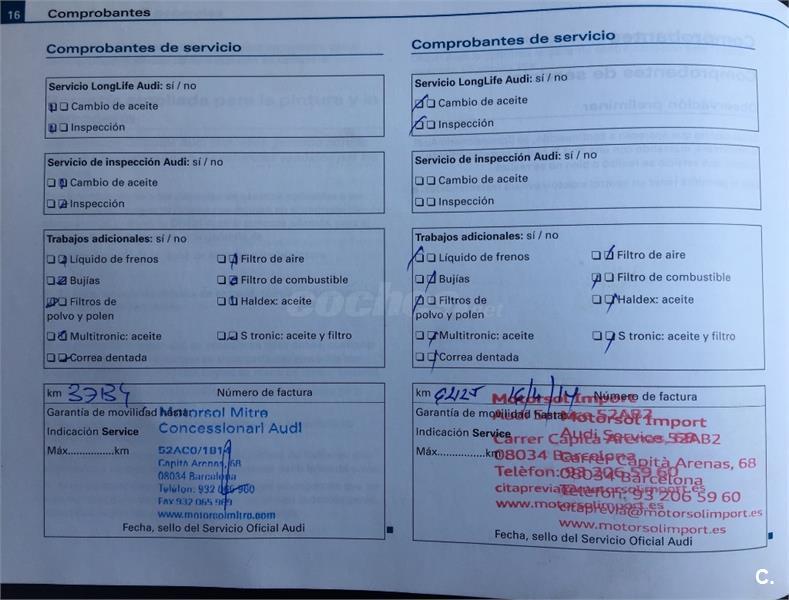 16 Comprobantes
Comprobantes de servicio
Servicio LongLife Audi: sí / no
Cambio de aceite
Inspección
Servicio de inspección Audi: sí / no
Cambio de aceite
Inspección
Trabajos adicionales: sí / no
Líquido de frenos
Filtro de aire
Bujías
Filtro de combustible
Filtros de
polvo y polen
Haldex: aceite
Multitronic: aceite
S tronic: aceite y filtro
Correa dentada
km
Número de factura
Garantía de movilidad hasta:
Motorsol Mitre
Indicación Service
Concessionari Audi
Máx.................km
52AC0/181
Capità Arenas, 68
08034 Barcelona
Telèfon: 932 0 960
Fax 932 065 9
www.motorsolmitre.com
Fecha, sello del Servicio Oficial Audi
Comprobantes de servicio
Servicio LongLife Audi: sí / no
Cambio de aceite
Inspección
Servicio de inspección Audi: sí / no
Cambio de aceite
Inspección
Trabajos adicionales: sí / no
Líquido de frenos
Filtro de aire
Bujías
Filtro de combustible
Filtros de
polvo y polen
Haldex: aceite
Multitronic: aceite
S tronic: aceite y filtro
Correa dentada
km 16/4/14
Número de factura
Motorsol Import
Garantía de movilidad hasta:
Motorsol Import
Indicación Service
Audi Service 52AB2
Máx.................km
Carrer Capità Arenas, 68
08034 Barcelona
Telèfon: 93 206 59 60
citaprevia@motorsolimport.es
www.motorsolimport.es
Carrer Capità Arenas, 68
08034 Barcelona
Telèfon: 93 206 59 60
citaprevia@motorsolimport.es
www.motorsolimport.es
Fecha, sello del Servicio Oficial Audi
coches.net
C.